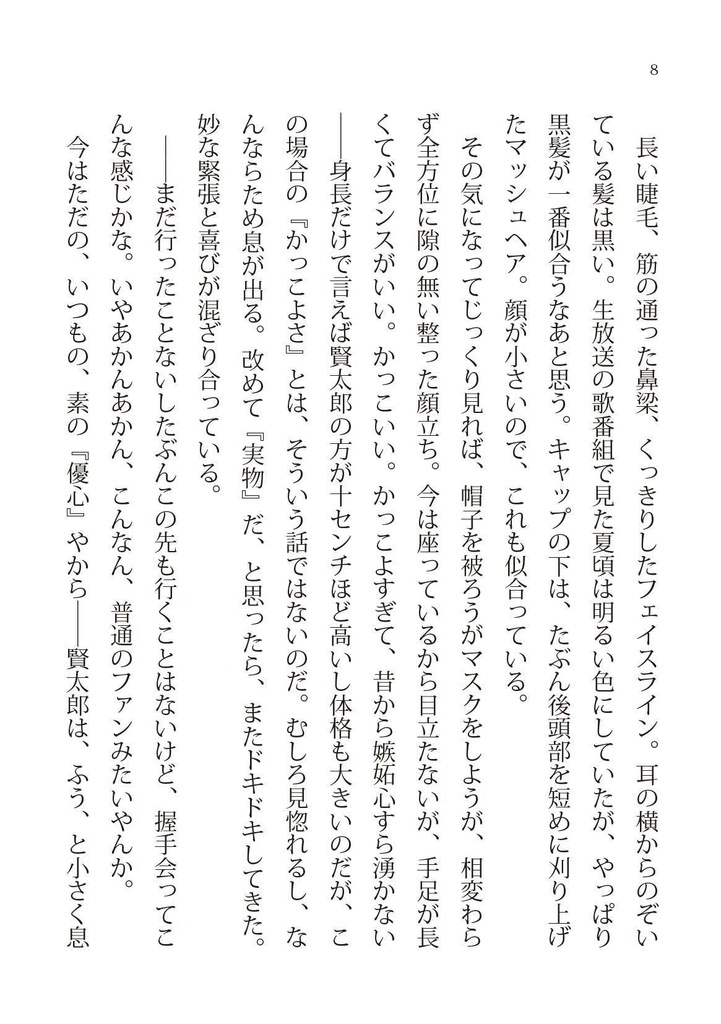 8
　長い睫毛、筋の通った鼻梁、くっきりしたフェイスライン。耳の横からのぞい
ている髪は黒い。生放送の歌番組で見た夏頃は明るい色にしていたが、やっぱり
黒髪が一番似合うなあと思う。キャップの下は、たぶん後頭部を短めに刈り上げ
たマッシュヘア。顔が小さいので、これも似合っている。
　その気になってじっくり見れば、帽子を被ろうがマスクをしようが、相変わら
ず全方位に隙の無い整った顔立ち。今は座っているから目立たないが、手足が長
くてバランスがいい。かっこいい。かっこよすぎて、昔から嫉妬心すら湧かない
――身長だけで言えば賢太郎の方が十センチほど高いし体格も大きいのだが、こ
の場合の『かっこよさ』とは、そういう話ではないのだ。むしろ見惚れるし、な
んならため息が出る。改めて『実物』だ、と思ったら、またドキドキしてきた。
妙な緊張と喜びが混ざり合っている。
　――まだ行ったことないしたぶんこの先も行くことはないけど、握手会ってこ
んな感じかな。いやあかんあかん、こんなん、普通のファンみたいやんか。
　今はただの、いつもの、素の『優心』やから――賢太郎は、ふう、と小さく息